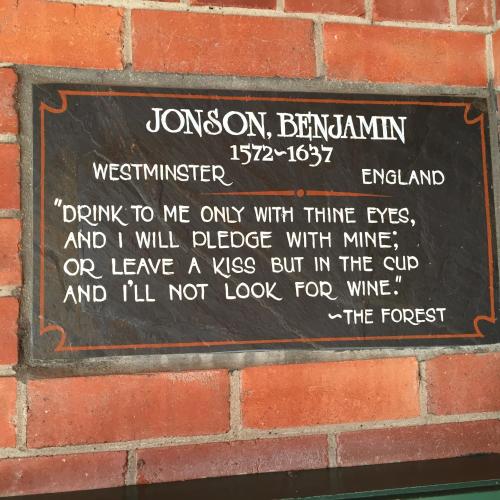 JONSON, BENJAMIN
1572~1637
WESTMINSTER ENGLAND
"DRINK TO ME ONLY WITH THINE EYES,
AND I WILL PLEDGE WITH MINE;
OR LEAVE A KISS BUT IN THE CUP
AND I'LL NOT LOOK FOR WINE."
~THE FOREST